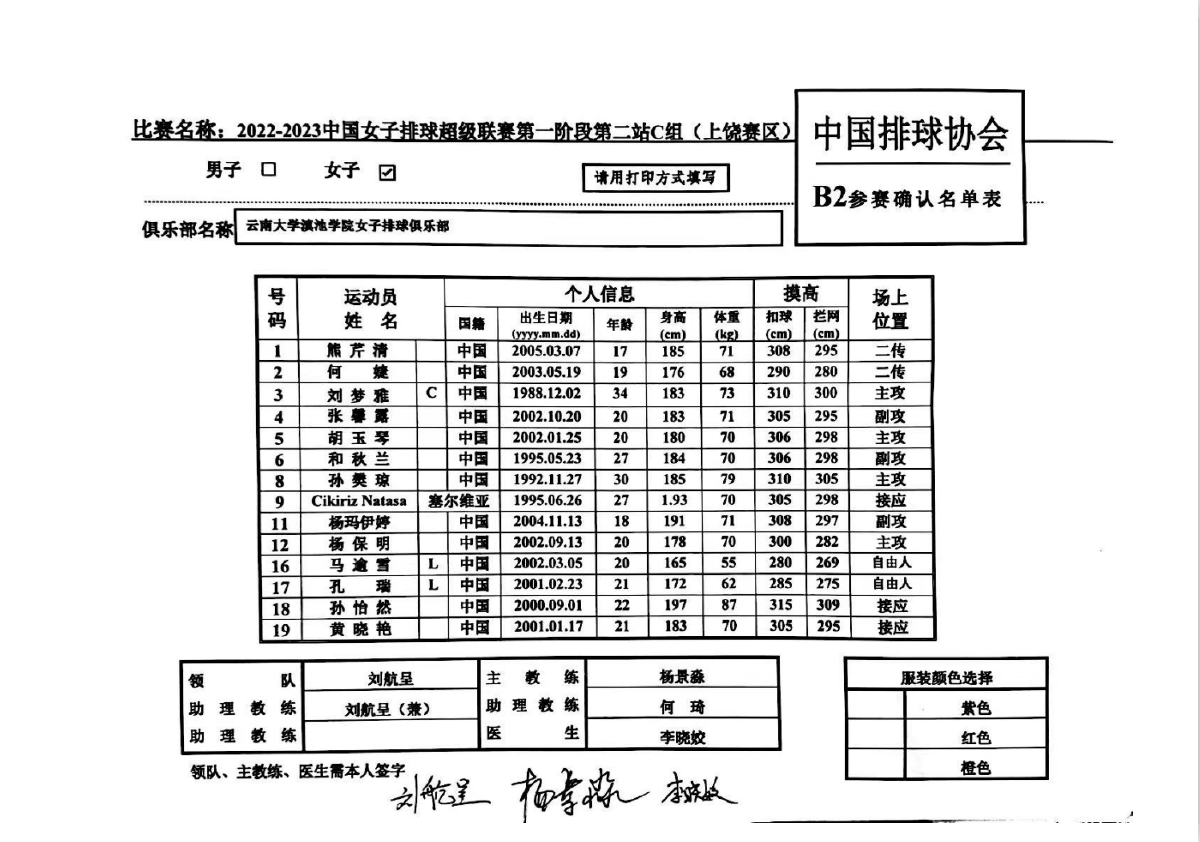 比赛名称：2022-2023中国女子排球超级联赛第一阶段第二站C组（上饶赛区）
中国排球协会
B2参赛确认名单表
男子 □ 女子 ☑
请用打印方式填写
俱乐部名称 云南大学滇池学院女子排球俱乐部
号码 运动员姓名 个人信息 摸高 场上位置
国籍 出生日期(yyyy.mm.dd) 年龄 身高(cm) 体重(kg) 扣球(cm) 拦网(cm)
1 熊芹清 中国 2005.03.07 17 185 71 308 295 二传
2 何婕 中国 2003.05.19 19 176 68 290 280 二传
3 刘梦雅 C 中国 1988.12.02 34 183 73 310 300 主攻
4 张馨露 中国 2002.10.20 20 183 71 305 295 副攻
5 胡玉琴 中国 2002.01.25 20 180 70 306 298 主攻
6 和秋兰 中国 1995.05.23 27 184 70 306 298 副攻
8 孙樊琼 中国 1992.11.27 30 185 79 310 305 主攻
9 Cikiriz Natasa 塞尔维亚 1995.06.26 27 1.93 70 305 298 接应
11 杨玛伊婷 中国 2004.11.13 18 191 71 308 297 副攻
12 杨保明 中国 2002.09.13 20 178 70 300 282 主攻
16 马逾雪 L 中国 2002.03.05 20 165 55 280 269 自由人
17 孔瑞 L 中国 2001.02.23 21 172 62 285 275 自由人
18 孙怡然 中国 2000.09.01 22 197 87 315 309 接应
19 黄晓艳 中国 2001.01.17 21 183 70 305 295 接应
领队 刘航呈 主教练 杨景淼
助理教练 刘航呈（兼） 助理教练 何琦
助理教练 医生 李晓姣
服装颜色选择
紫色
红色
橙色
领队、主教练、医生需本人签字
刘航呈 杨景淼 李晓姣